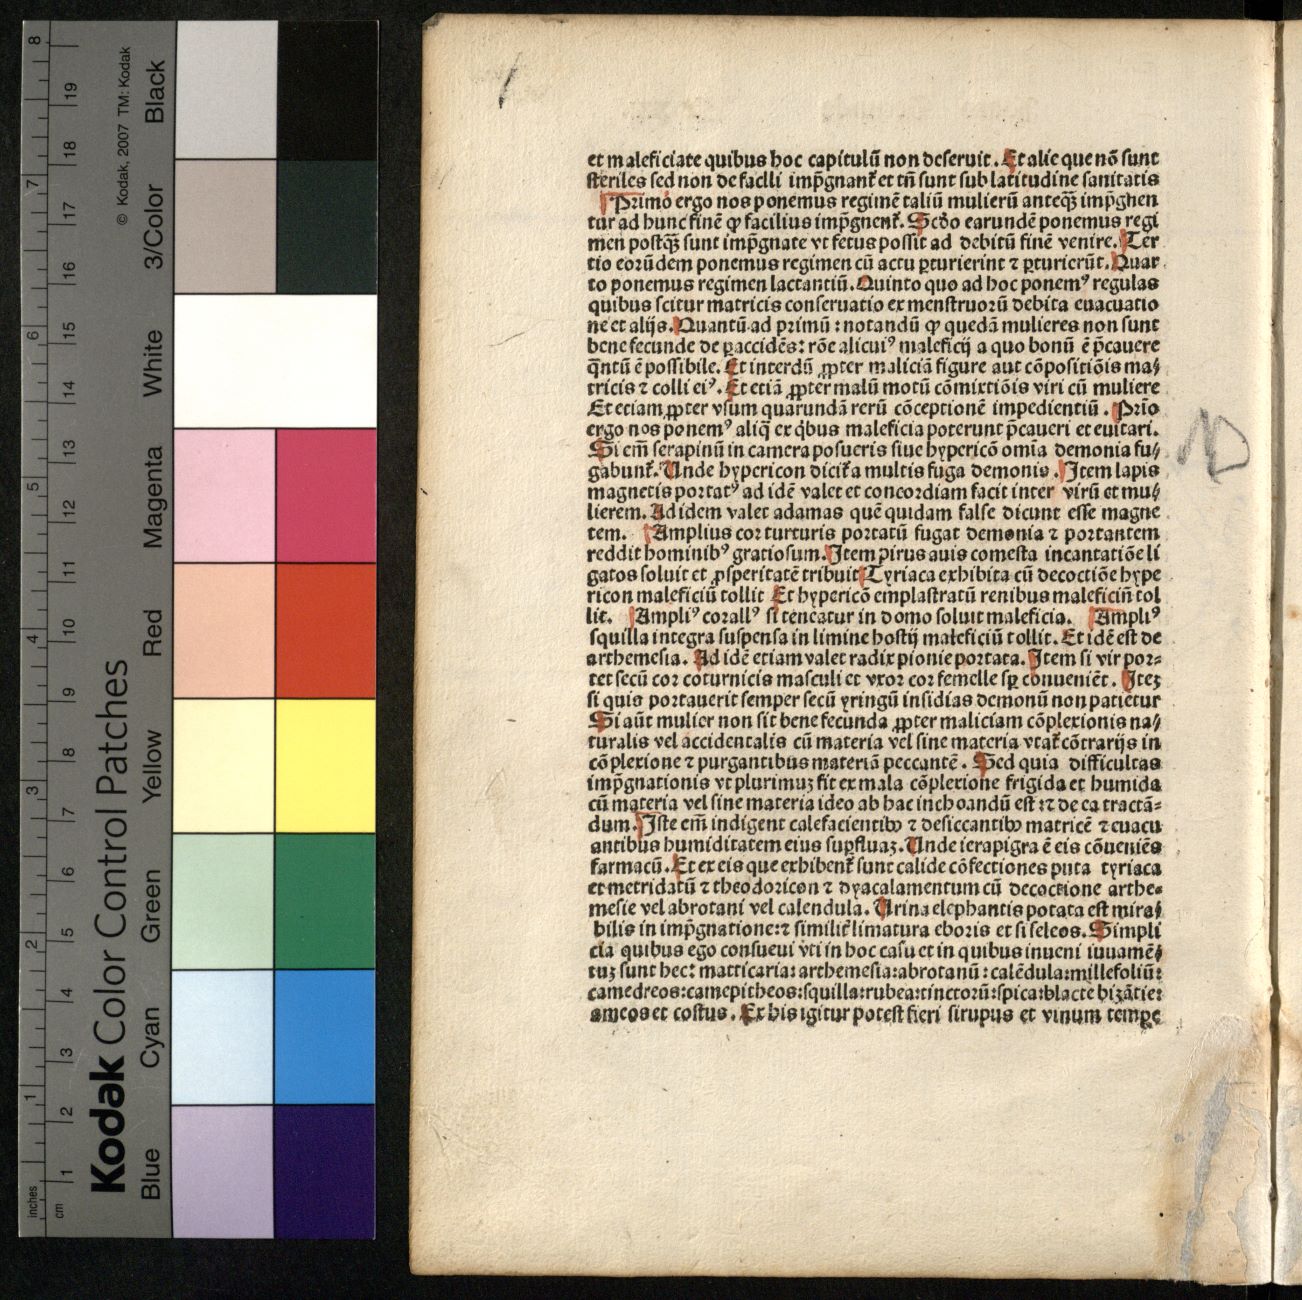 Kodak Color Control Patches
© Kodak, 2007 TM: Kodak
Blue Cyan Green Yellow Red Magenta White 3/Color Black
inches 1 2 3 4 5 6 7 8
cm 1 2 3 4 5 6 7 8 9 10 11 12 13 14 15 16 17 18 19
et maleficiate quibus hoc capitulū non deseruit. Et alie que nō sunt
steriles sed non de facili imp̄gnant᷑ et tn̄ sunt sub latitudine sanitatis
Primo ergo nos ponemus regimē taliū mulierū anteq̄ꝫ imp̄gnen
tur ad hunc finē ꝙ facilius imp̄gnent᷑. Scd̄o earundē ponemus regi
men postq̄ꝫ sunt imp̄gnate vt fetus possit ad debitū finē venire. Ter
tio eorūdem ponemus regimen cū actu ꝑturierint ⁊ ꝑturierūt. Quar
to ponemus regimen lactantiū. Quinto quo ad hoc ponemꝰ regulas
quibus scitur matricis conseruatio ex menstruorū debita euacuatio
ne et alijs. Quantū ad primū : notandū ꝙ quedā mulieres non sunt
bene fecunde de ꝑaccidēs: rōe alicuiꝰ maleficij a quo bonū ē p̄cauere
q̄ntū ē possibile. Et interdū ꝓpter maliciā figure aut cōpositiōis ma⸗
tricis ⁊ colli eiꝰ. Et etiā ꝓpter malū motū cōmixtiōis viri cū muliere
Et etiam ꝓpter vsum quarundā rerū cōceptionē impedientiū. Prīo
ergo nos ponemꝰ aliq̄ ex q̄bus maleficia poterunt p̄caueri et euitari.
Si em̄ serapinū in camera posueris siue hypericō omīa demonia fu⸗
gabunt᷑. Unde hypericon dicit᷑ a multis fuga demonis. Item lapis
magnetis portatꝰ ad idē valet et concordiam facit inter virū et mu⸗
lierem. Ad idem valet adamas quē quidam false dicunt esse magne
tem. Amplius cor turturis portatū fugat demonia ⁊ portantem
reddit hominibꝰ gratiosum. Item pirus auis comesta incantatiōe li
gatos soluit et ꝓsperitatē tribuit Tyriaca exhibita cū decoctiōe hype
ricon maleficiū tollit Et hypericō emplastratū renibus maleficiū tol
lit. Ampliꝰ corallꝰ si teneatur in domo soluit maleficia. Ampliꝰ
squilla integra suspensa in limine hostij maleficiū tollit. Et idē est de
arthemesia. Ad idē etiam valet radix pionie portata. Item si vir por⸗
tet secū cor coturnicis masculi et vxor cor femelle sꝑ conueniēt. Iteꝫ
si quis portauerit semper secū yringū insidias demonū non patietur
Si aūt mulier non sit bene fecunda ꝓpter maliciam cōplexionis na⸗
turalis vel accidentalis cū materia vel sine materia vtat᷑ cōtrarijs in
cōplexione ⁊ purgantibus materiā peccantē. Sed quia difficultas
imp̄gnationis vt plurimuꝫ fit ex mala cōplexione frigida et humida
cū materia vel sine materia ideo ab hac inchoandū est :⁊ de ea tractā⸗
dum. Iste em̄ indigent calefacientibꝫ ⁊ desiccantibꝫ matricē ⁊ euacu
antibus humiditatem eius suꝑfluaꝫ. Unde ierapigra ē eis cōueniēs
farmacū. Et ex eis que exhibent᷑ sunt calide cōfectiones puta tyriaca
et metridatū ⁊ theodoricon ⁊ dyacalamentum cū decoctione arthe⸗
mesie vel abrotani vel calendula. Urina elephantis potata est mira⸗
bilis in imp̄gnatione:⁊ similit᷑ limatura eboris et siseleos. Simpli
cia quibus ego consueui vti in hoc casu et in quibus inueni iuuamē⸗
tuꝫ sunt hec: matricaria: arthemesia: abrotanū: calēdula: millefoliū:
camedreos: camepitheos: squilla: rubea: tinctorū: spica: blacte bizātie:
ameos et costus. Ex his igitur potest fieri sirupus et vinum tempe